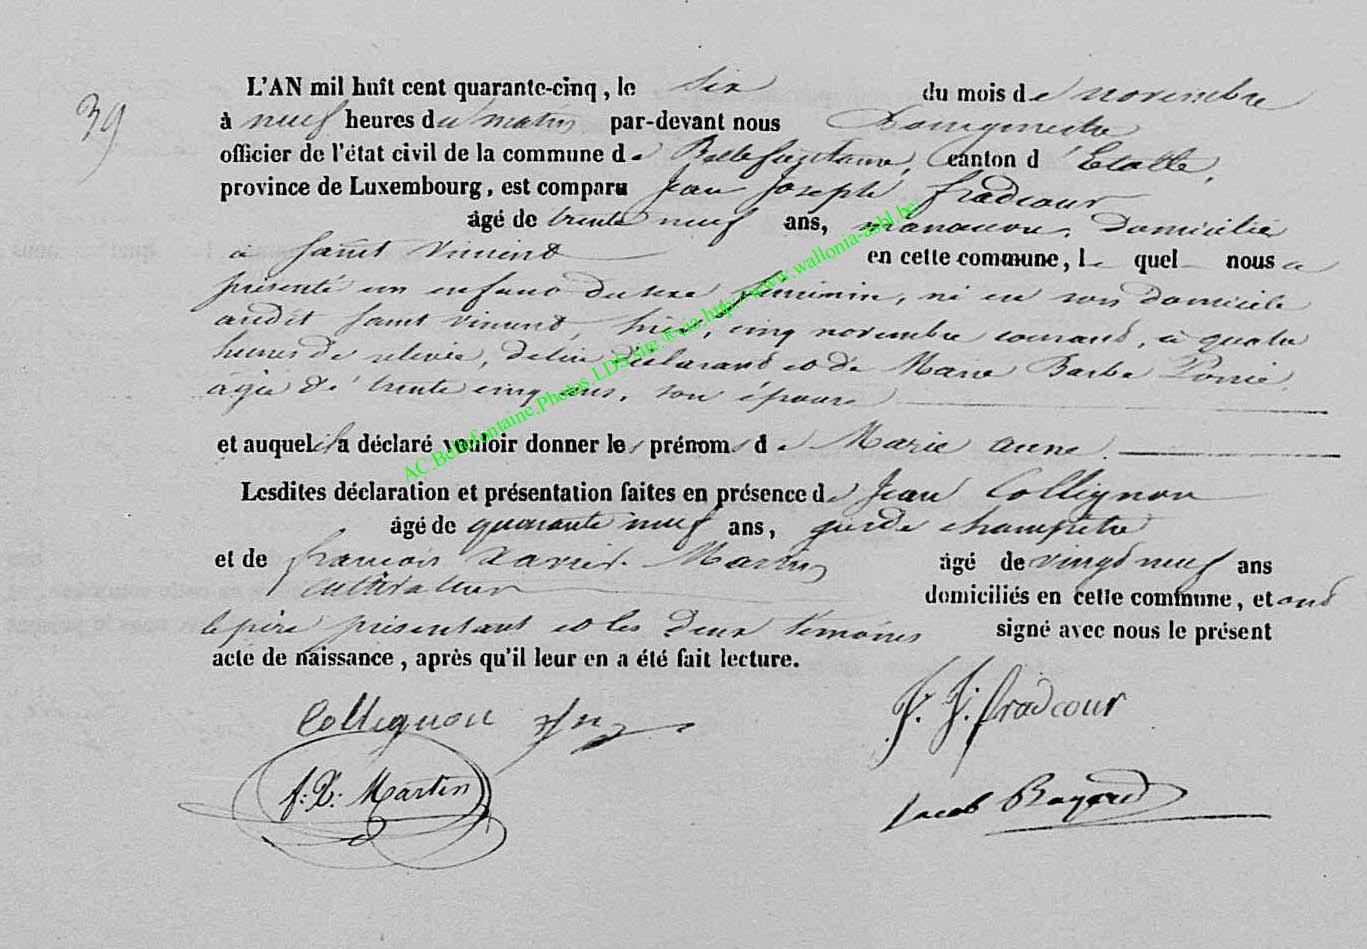 39
L'AN mil huit cent quarante-cinq, le six du mois de novembre
à neuf heures du matin par-devant nous Bourgmestre
officier de l'état civil de la commune de Bellefontaine, canton d'Etalle,
province de Luxembourg, est comparu Jean Joseph fradcour
âgé de trente neuf ans, manœuvre, domicilié
à Saint Vincent en cette commune, lequel nous a
présenté un enfant du sexe féminin, né en son domicile
audit Saint Vincent hier, cinq novembre courant, à quatre
heures de relevée, de lui déclarant et de Marie Barbe
âgée de trente cinq ans, son épouse
et auquel il a déclaré vouloir donner les prénoms de Marie anne.
Lesdites déclaration et présentation faites en présence de Jean Collignon
âgé de quarante neuf ans, garde champêtre
et de françois Xavier Martin âgé de vingt neuf ans
cultivateur domiciliés en cette commune, et ont
le père présentant et les deux témoins signé avec nous le présent
acte de naissance, après qu'il leur en a été fait lecture.
Collignon J. J. fradcour
f. X. Martin Jacob Bayard
AC.Bellefontaine.Photos.LDS.site.®via.http://www.wallonia-asbl.be/